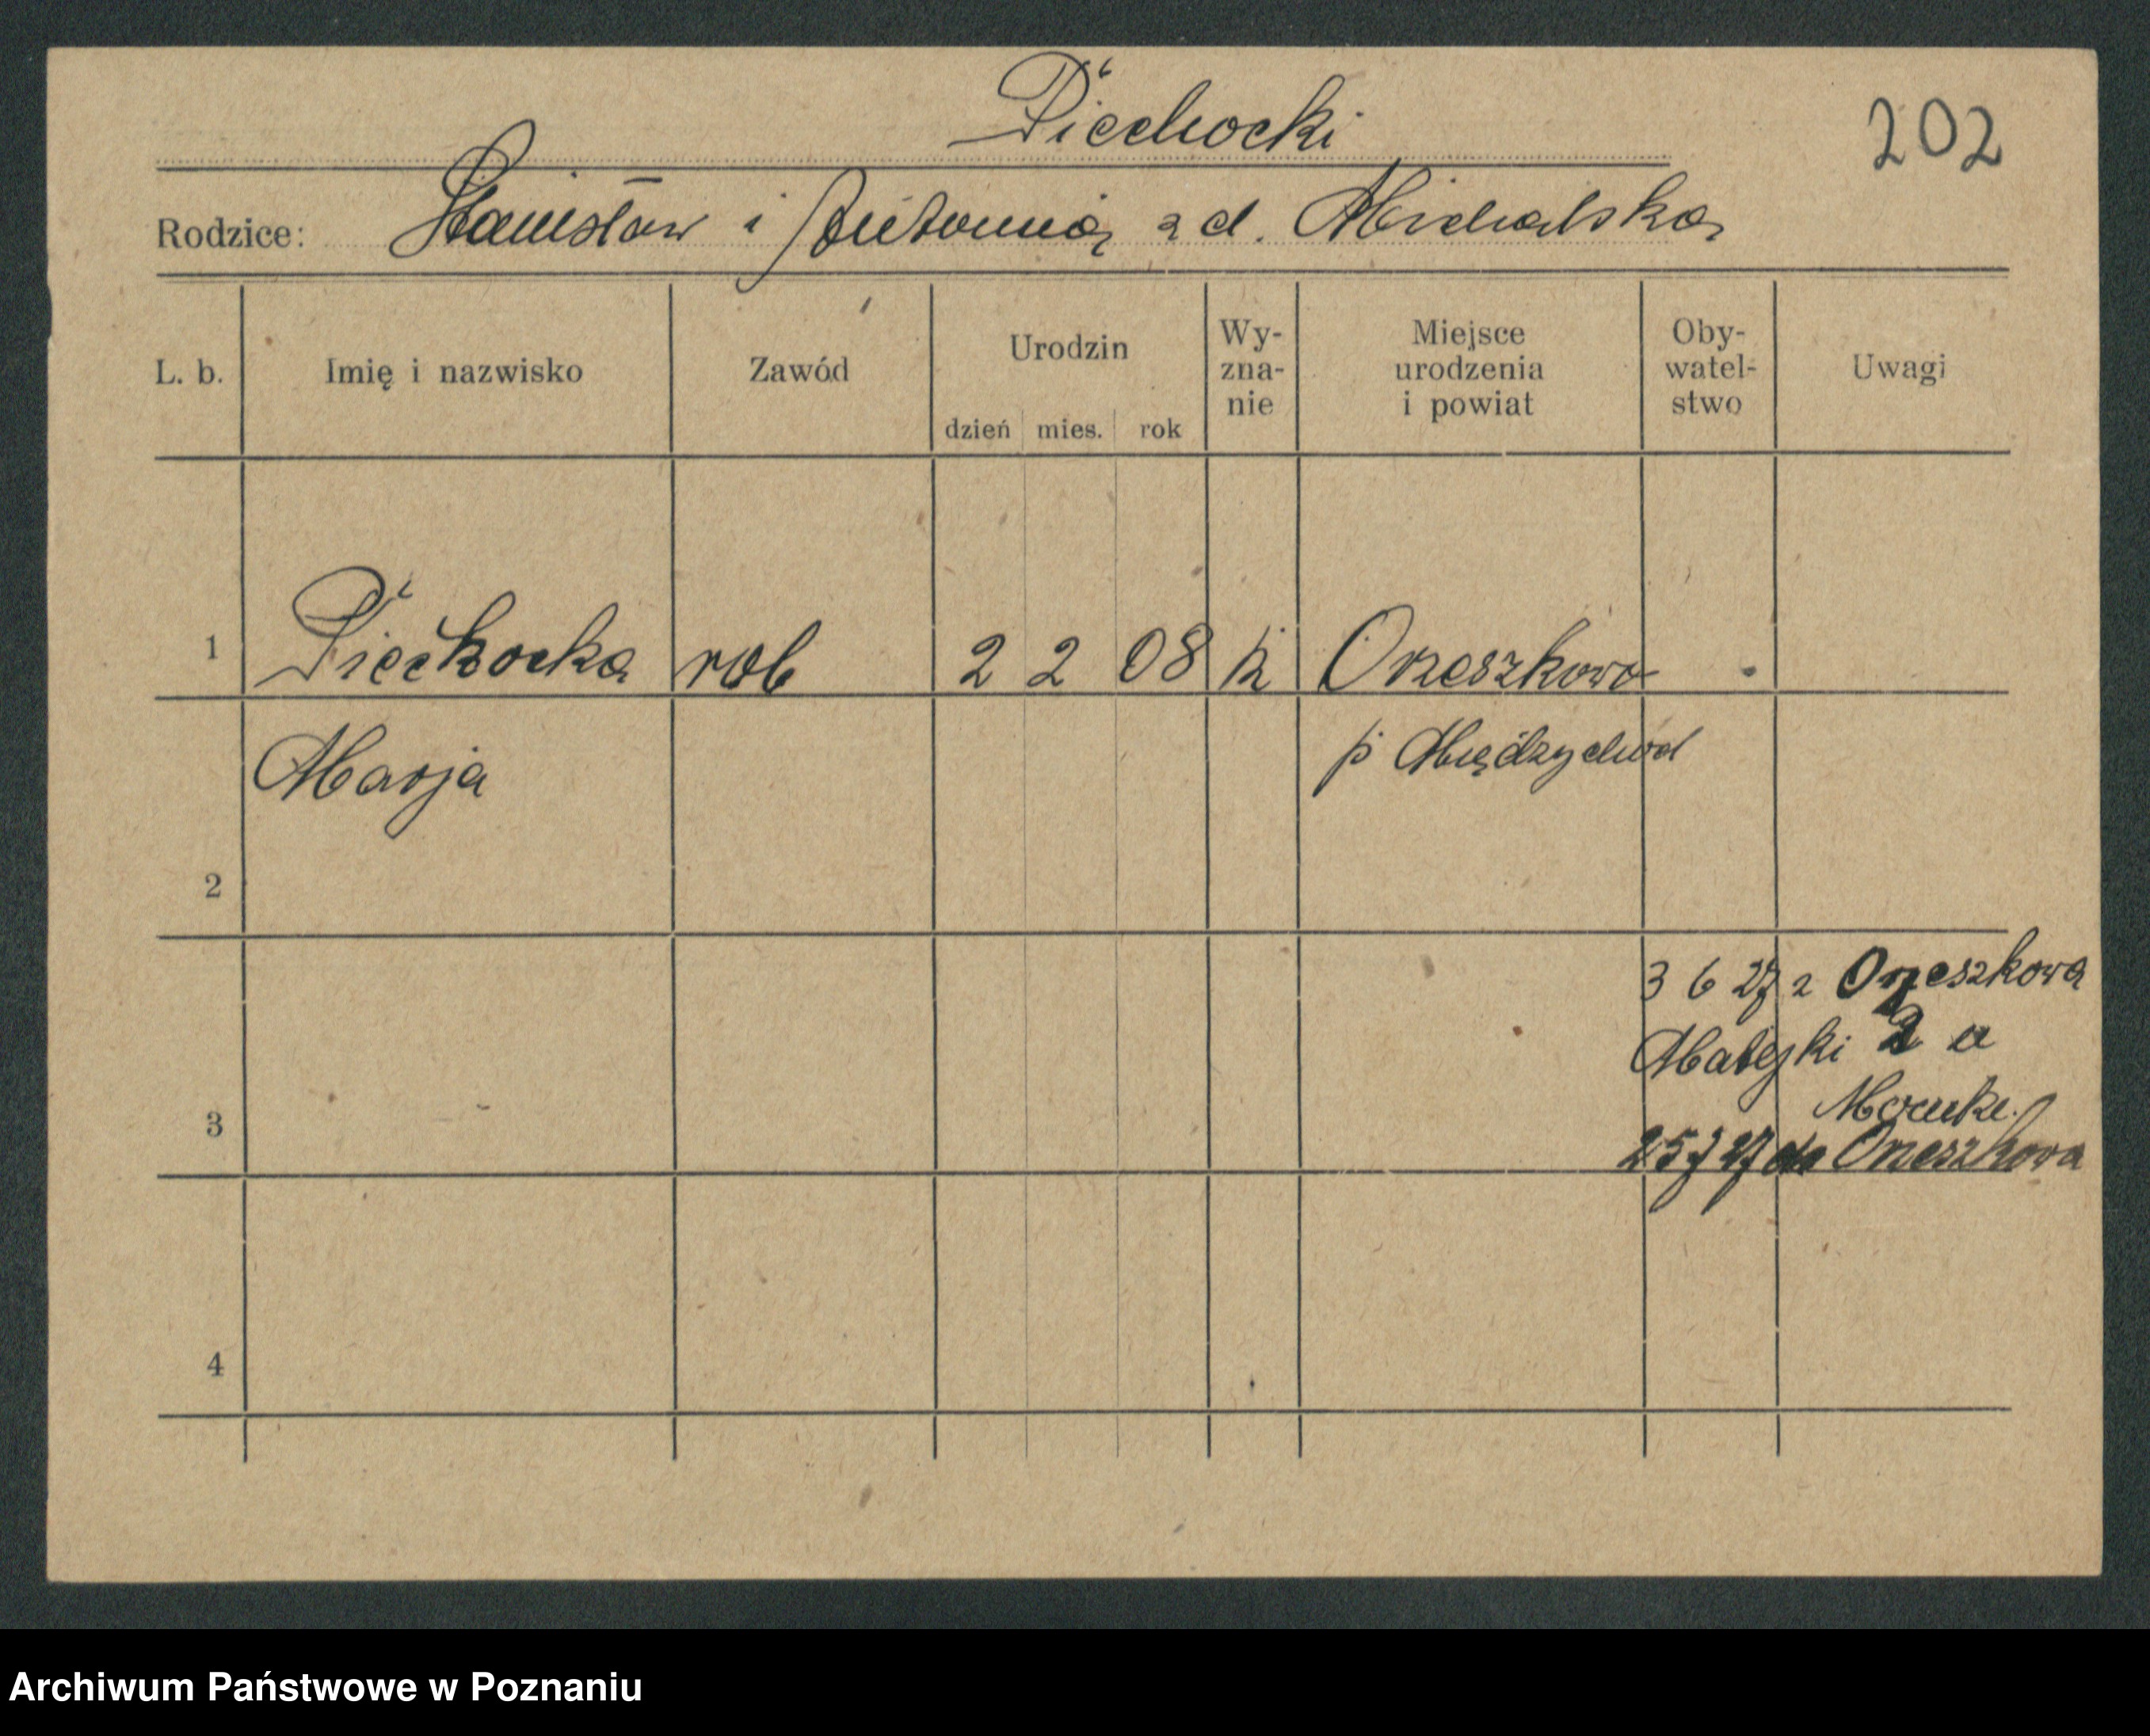 Piechocki
202
Rodzice: Stanisław i Antonią z d. Michalską
L. b. Imię i nazwisko Zawód Urodzin dzień mies. rok Wy-zna-nie Miejsce urodzenia i powiat Oby-watel-stwo Uwagi
1 Piechocka rob 2 2 08 k Orzeszkowo
Marja p Międzychód
2
3 6 27 z Orzeszkowa
Matejki 2 u
3
25 7 27 do Orzeszkowa
4
Archiwum Państwowe w Poznaniu